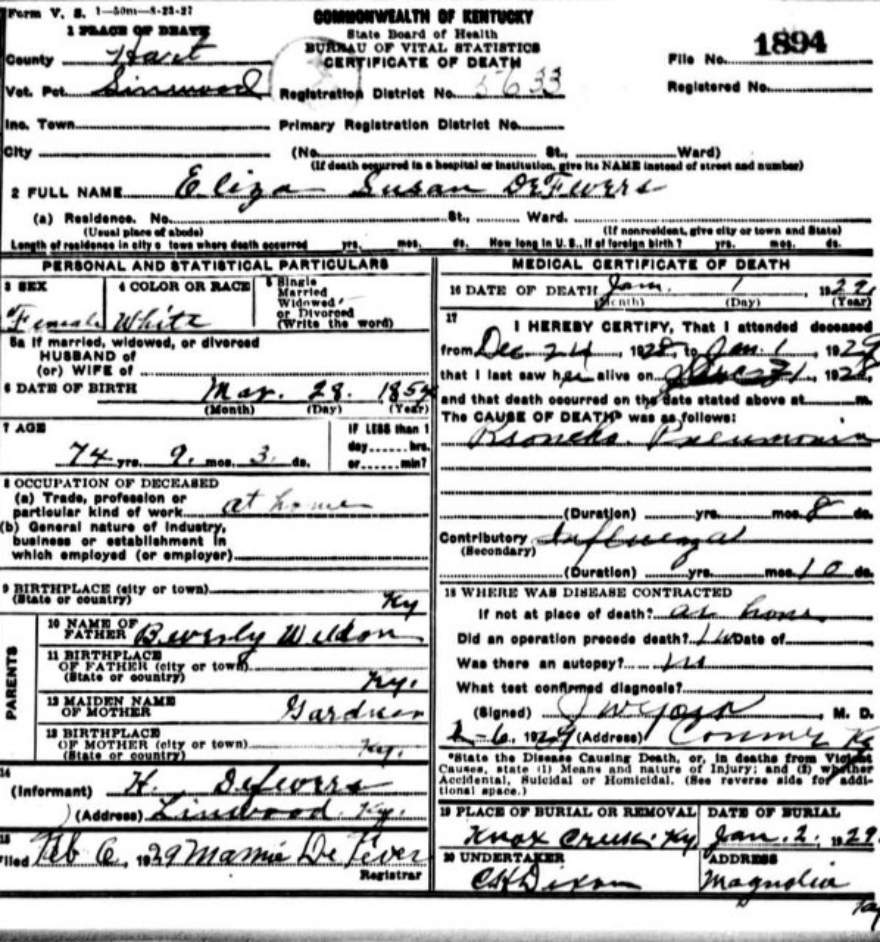 Form V. S. 1—50m—8-23-27
COMMONWEALTH OF KENTUCKY
State Board of Health
BUREAU OF VITAL STATISTICS
CERTIFICATE OF DEATH
1 PLACE OF DEATH
County Hart
File No. 1894
Vot. Pct. Linwood Registration District No. 5633
Registered No.
Inc. Town Primary Registration District No.
City (No. St., Ward)
(If death occurred in a hospital or institution, give its NAME instead of street and number)
2 FULL NAME Eliza Susan DeFevers
(a) Residence. No. St., Ward.
(Usual place of abode) (If nonresident, give city or town and State)
Length of residence in city o town where death occurred yrs. mos. ds. How long in U. S., if of foreign birth? yrs. mos. ds.
PERSONAL AND STATISTICAL PARTICULARS
3 SEX 4 COLOR OR RACE 5 Single
Married
Widowed
or Divorced
(Write the word)
Female White
5a If married, widowed, or divorced
HUSBAND of
(or) WIFE of
6 DATE OF BIRTH Mar. 28. 1854
(Month) (Day) (Year)
7 AGE IF LESS than 1
day hrs.
74 yrs. 9. mos. 3. ds. or min?
8 OCCUPATION OF DECEASED
(a) Trade, profession or
particular kind of work at home
(b) General nature of industry,
business or establishment in
which employed (or employer)
9 BIRTHPLACE (city or town)
(State or country) Ky
PARENTS
10 NAME OF
FATHER Beverly Weldon
11 BIRTHPLACE
OF FATHER (city or town)
(State or country) Ky.
12 MAIDEN NAME
OF MOTHER Gardner
13 BIRTHPLACE
OF MOTHER (city or town)
(State or country) Ky.
14
(Informant) H. Defevers
(Address) Linwood Ky.
15
Filed Feb 6, 1929 Mamie DeFever
Registrar
MEDICAL CERTIFICATE OF DEATH
16 DATE OF DEATH Jan. 1, 1929
(Month) (Day) (Year)
17
I HEREBY CERTIFY, That I attended deceased
from Dec. 24, 1928, to Jan. 1, 1929
that I last saw her alive on 31, 1928,
and that death occurred on the date stated above at m.
The CAUSE OF DEATH* was as follows:
Broncho Pneumonia
(Duration) yrs. mos. 8 ds.
Contributory Influenza
(Secondary)
(Duration) yrs. mos. 10 ds.
18 WHERE WAS DISEASE CONTRACTED
If not at place of death? at home
Did an operation precede death? Date of
Was there an autopsy? no
What test confirmed diagnosis?
(Signed) , M. D.
6, 1929 (Address) Ky
*State the Disease Causing Death, or, in deaths from Violent
Causes, state (1) Means and nature of Injury; and (2) whether
Accidental, Suicidal or Homicidal. (See reverse side for addi-
tional space.)
19 PLACE OF BURIAL OR REMOVAL DATE OF BURIAL
Knox Creek Ky Jan. 2. 1929.
20 UNDERTAKER ADDRESS
CH Dixon Magnolia
Ky